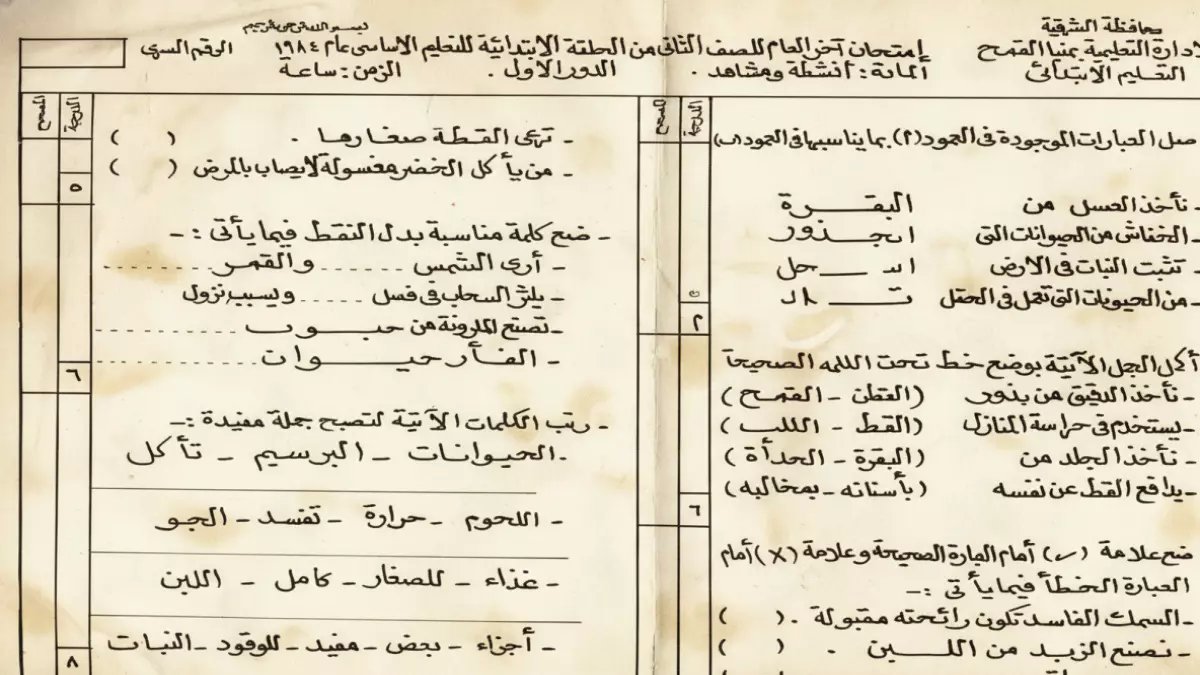 بسم الله الرحمن الرحيم
محافظة الشرقية
إدارة التعليمية بمنيا القمح
التعليم الابتدائي
إمتحان آخر العام للصف الثاني من الحلقة الابتدائية للتعليم الأساسي عام ١٩٨٤
المادة : أنشطة ومشاهد . الدور الأول . الزمن : ساعة
الرقم السرى
الدرجة
المصحح
صل العبارات الموجودة فى العمود (٢) بما يناسبها فى العمود (ب)
- نأخذ العسل من البقرة
- الخفاش من الحيوانات التى الجذور
- تثبت النبات فى الأرض
- من الحيويات التى تعمل فى الحقل
٢
أكمل الجمل الآتية بوضع خط تحت الكلمه الصحيحة
- نأخذ الدقيق من بذور (القطن - القمح)
- يستخدم فى حراسة المنازل (القط - الكلب)
- نأخذ الجلد من (البقرة - الحدأة)
- يدافع القط عن نفسه (بأسنانه - بمخالبه)
٦
ضع علامة (✓) أمام العبارة الصحيحة وعلامة (X) أمام
العبارة الخطأ فيما يأتى :-
- السمك الفاسد تكون رائحته مقبولة . ( )
- نصنع الزبد من اللبن . ( )
الدرجة
المصحح
- ترعى القطة صغارها . ( )
- من يأكل الخضر مغسولة لا يصاب بالمرض ( )
٥
- ضع كلمة مناسبة بدل النقط فيما يأتى :-
- أرى الشمس ...... والقمر ..........
- يكثر السحاب فى فصل ..... ويسبب نزول
- تصنع المكرونة من حبوب ..............
- الفأر حيوان ..............
٦
- رتب الكلمات الآتية لتصبح جملة مفيدة :-
- الحيوانات - البرسيم - تأكل
- اللحوم - حرارة - تفسد - الجو
- غذاء - للصغار - كامل - اللبن
- أجزاء - بعض - مفيد - للوقود - النبات
٨